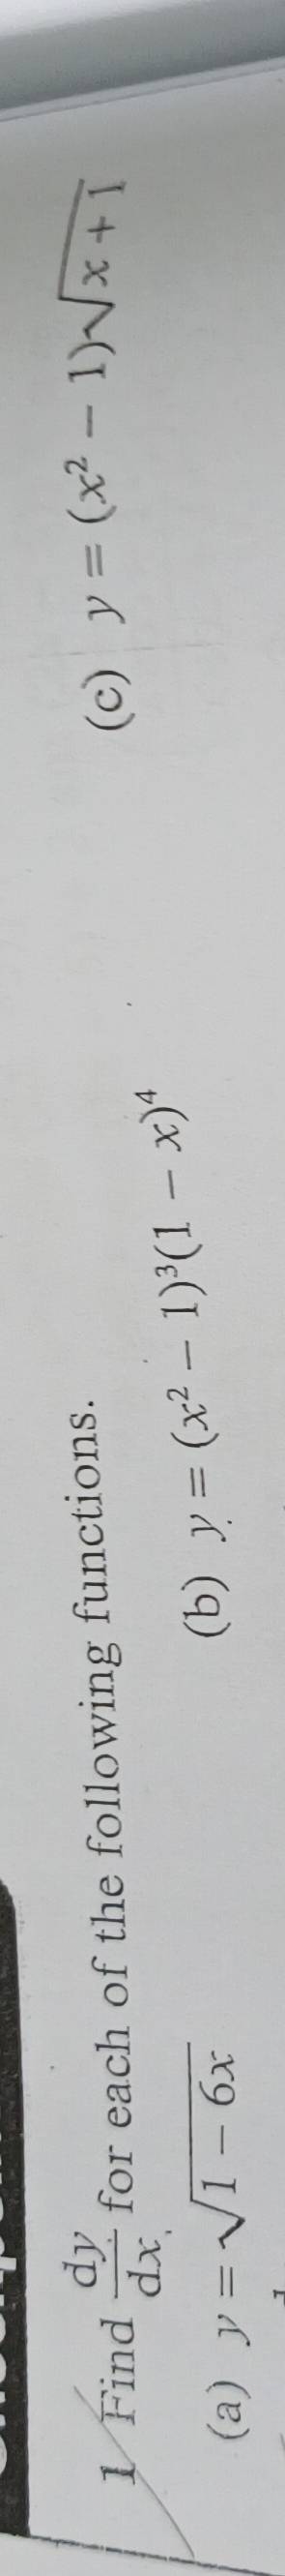 1 Find dy/dx for each of the following functions.
(a) y = √(1 − 6x) (b) y = (x² − 1)³(1 − x)⁴ (c) y = (x² − 1)√(x + 1)